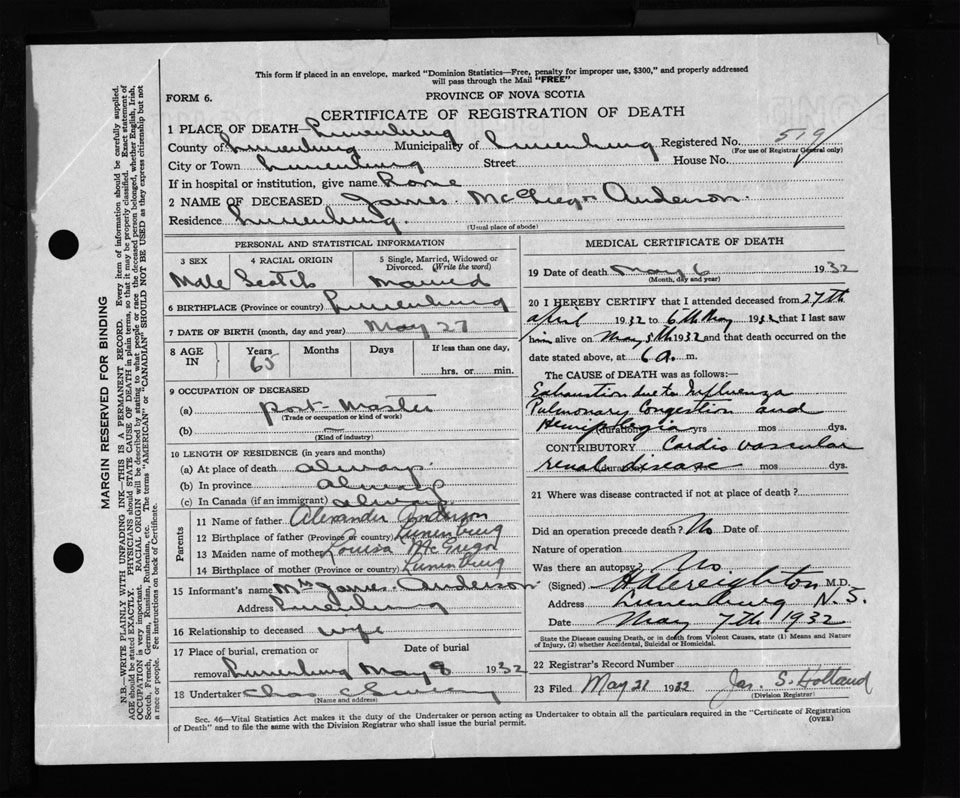 This form if placed in an envelope, marked "Dominion Statistics—Free, penalty for improper use, $300," and properly addressed
will pass through the Mail "FREE"
FORM 6.
PROVINCE OF NOVA SCOTIA
CERTIFICATE OF REGISTRATION OF DEATH
1 PLACE OF DEATH— Lunenburg
County of Lunenburg Municipality of Lunenburg Registered No. 519
(For use of Registrar General only)
City or Town Lunenburg Street House No.
If in hospital or institution, give name
2 NAME OF DECEASED James McGregor Anderson
Residence Lunenburg.
(Usual place of abode)
PERSONAL AND STATISTICAL INFORMATION
3 SEX Male
4 RACIAL ORIGIN Scotch
5 Single, Married, Widowed or Divorced. (Write the word) Married
6 BIRTHPLACE (Province or country) Lunenburg
7 DATE OF BIRTH (month, day and year) May 27
8 AGE IN Years 65 Months Days If less than one day, hrs. or min.
9 OCCUPATION OF DECEASED
(a) Post-Master
(Trade or occupation or kind of work)
(b)
(Kind of industry)
10 LENGTH OF RESIDENCE (in years and months)
(a) At place of death always
(b) In province always
(c) In Canada (if an immigrant) always
Parents
11 Name of father Alexander Anderson
12 Birthplace of father (Province or country) Lunenburg
13 Maiden name of mother Louisa McGregor
14 Birthplace of mother (Province or country) Lunenburg
15 Informant's name Mrs James Anderson
Address Lunenburg
16 Relationship to deceased wife
17 Place of burial, cremation or removal Lunenburg Date of burial May 8 1932
18 Undertaker Chas
(Name and address)
MEDICAL CERTIFICATE OF DEATH
19 Date of death May 6 1932
(Month, day and year)
20 I HEREBY CERTIFY that I attended deceased from 27th
April 1932 to 6th May 1932 that I last saw
him alive on May 5th 1932 and that death occurred on the
date stated above, at 6 a. m.
The CAUSE of DEATH was as follows:—
Exhaustion due to Influenza
Pulmonary Congestion and
Hemiplegia (duration) yrs mos dys.
CONTRIBUTORY Cardio vascular
renal disease (duration) mos dys.
21 Where was disease contracted if not at place of death?
Did an operation precede death? No Date of
Nature of operation
Was there an autopsy? No
(Signed) H A Creighton M.D.
Address Lunenburg N.S.
Date May 7th 1932
State the Disease causing Death, or in death from Violent Causes, state (1) Means and Nature
of Injury, (2) whether Accidental, Suicidal or Homicidal.
22 Registrar's Record Number
23 Filed May 21 1932 Jas. S. Holland
(Division Registrar)
Sec. 46—Vital Statistics Act makes it the duty of the Undertaker or person acting as Undertaker to obtain all the particulars required in the "Certificate of Registration
of Death" and to file the same with the Division Registrar who shall issue the burial permit.
(OVER)
MARGIN RESERVED FOR BINDING
N.B.—WRITE PLAINLY WITH UNFADING INK—THIS IS A PERMANENT RECORD. Every item of information should be carefully supplied.
AGE should be stated EXACTLY. PHYSICIANS should STATE CAUSE OF DEATH in plain terms, so that it may be properly classified. Exact statement of
OCCUPATION is very important. RACIAL ORIGIN will be described by stating to what people or race the deceased person belonged, whether English, Irish,
Scotch, French, German, Russian, Ruthenian, etc. The terms "AMERICAN" or "CANADIAN" SHOULD NOT BE USED as they express citizenship but not
a race or people. Fee instructions on back of Certificate.